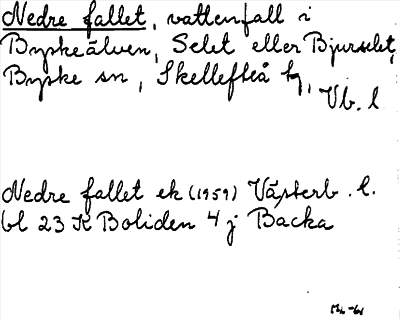 Nedre fallet, vattenfall i
Byskeälven, Selet eller Bjurselet,
Byske sn, Skellefteå tg,
Vb. l
Nedre fallet ek (1959) Västerb. l.
bl 23 K Boliden 4 j Backa